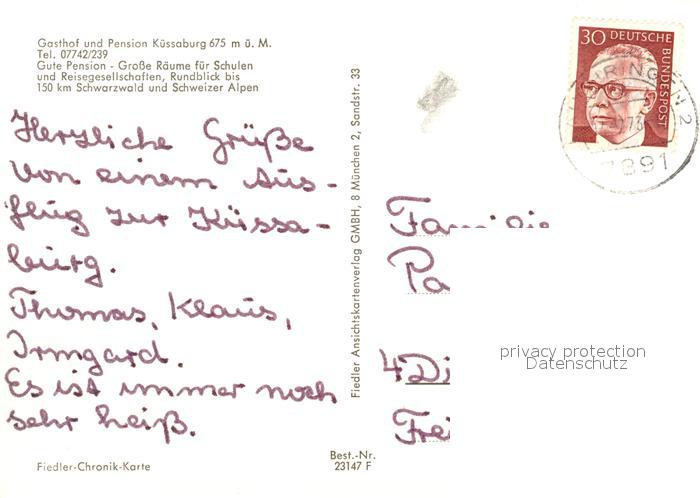 Gasthof und Pension Küssaburg 675 m ü. M.
Tel. 07742/239
Gute Pension - Große Räume für Schulen
und Reisegesellschaften, Rundblick bis
150 km Schwarzwald und Schweizer Alpen
Herzliche Grüße
von einem Aus-
flug zur Küssa-
burg.
Thomas, Klaus,
Irmgard.
Es ist immer noch
sehr heiß.
Fiedler-Chronik-Karte
Fiedler Ansichtskartenverlag GMBH, 8 München 2, Sandstr. 33
Best.-Nr.
23147 F
30 DEUTSCHE
BUNDESPOST
7891
Familie
Pa
4 Di
Frei
privacy protection
Datenschutz